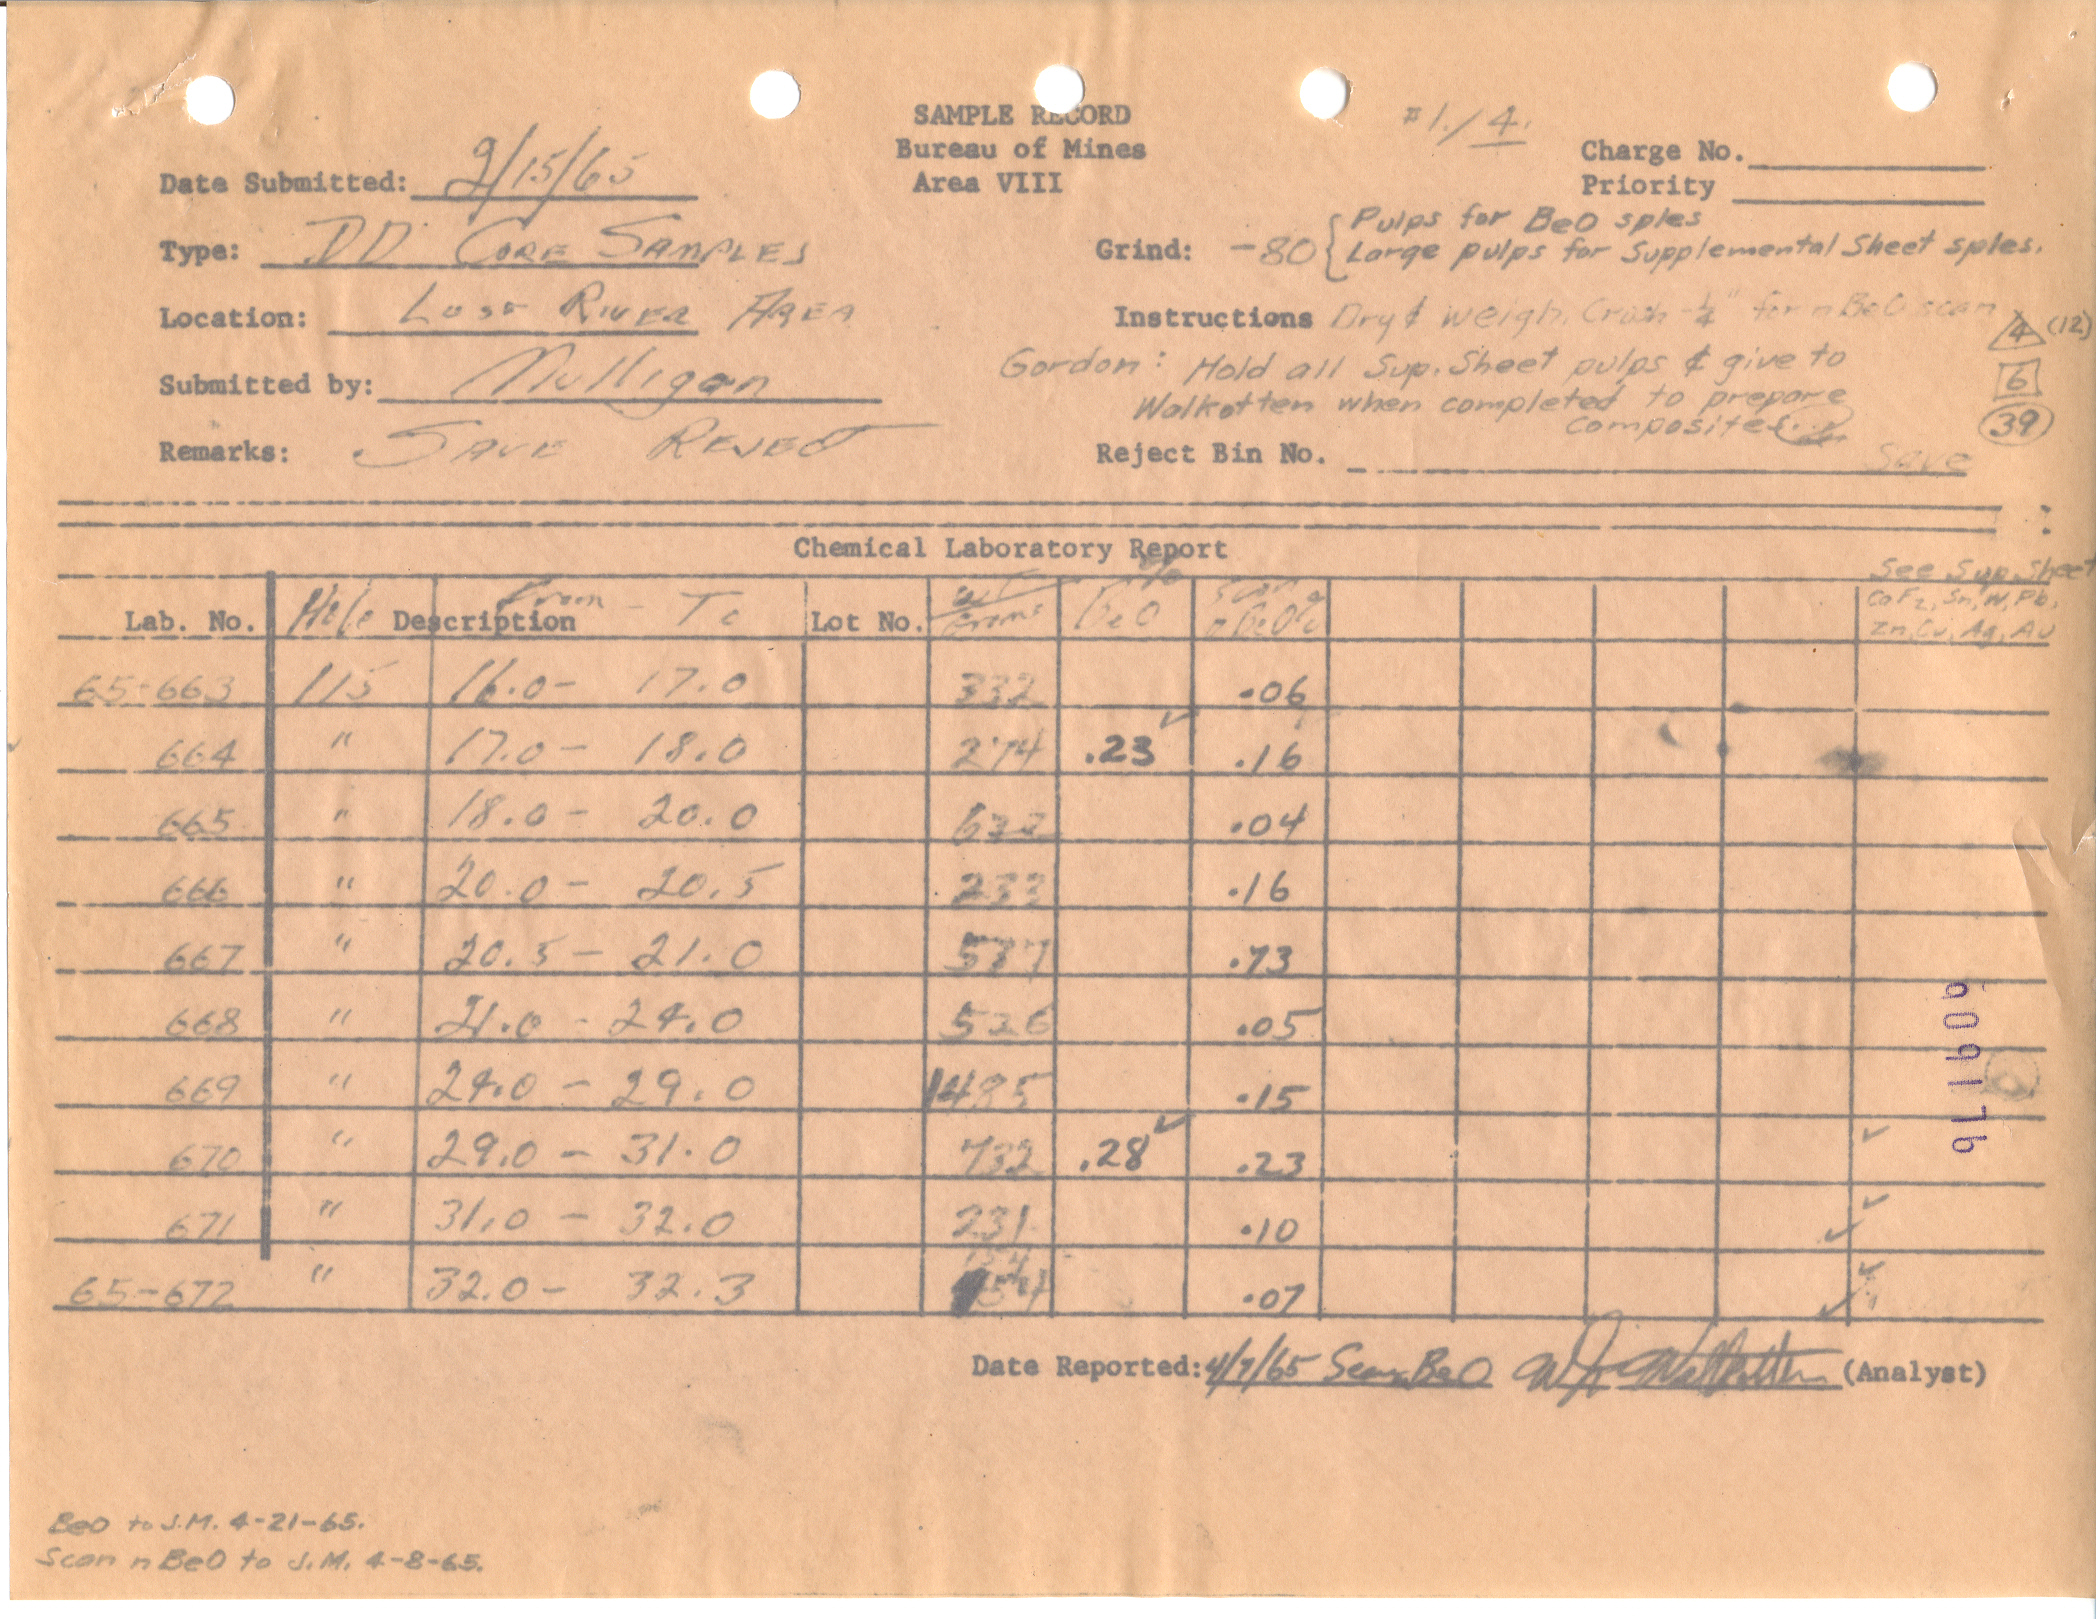 SAMPLE RECORD
#1./4.
Bureau of Mines
Charge No.
Date Submitted: 2/15/65
Area VIII
Priority
Type: DD CORE SAMPLES
Grind: -80 { Pulps for BeO sples
Large pulps for Supplemental Sheet sples.
Location: LOST RIVER AREA
Instructions Dry & weigh. Crush -¼" for nBeO scan
4 (12)
Submitted by: Mulligan
Gordon: Hold all Sup. Sheet pulps & give to
6
Walkotten when completed to prepare
composites.
39
Remarks: SAVE REJECT
Reject Bin No. Save
Chemical Laboratory Report
See Sup. Sheet
Lab. No. Hole Description From - To Lot No. wt grams BeO % Scan nBeO% CaF2, Sn, W, Pb,
Zn, Cu, Ag, Au
65-663 115 16.0 - 17.0 332 .06
664 " 17.0 - 18.0 274 .23 ✓ .16
665 " 18.0 - 20.0 632 .04
666 " 20.0 - 20.5 233 .16
667 " 20.5 - 21.0 577 .73
668 " 21.0 - 24.0 526 .05
669 " 24.0 - 29.0 1485 .15
670 " 29.0 - 31.0 732 .28 ✓ .23 ✓
671 " 31.0 - 32.0 231 .10 ✓ ✓
65-672 " 32.0 - 32.3 154 .07 ✓ ✓
Date Reported: 4/7/65 Scan BeO W J Walkotten (Analyst)
BeO to J.M. 4-21-65.
Scan n BeO to J.M. 4-8-65.